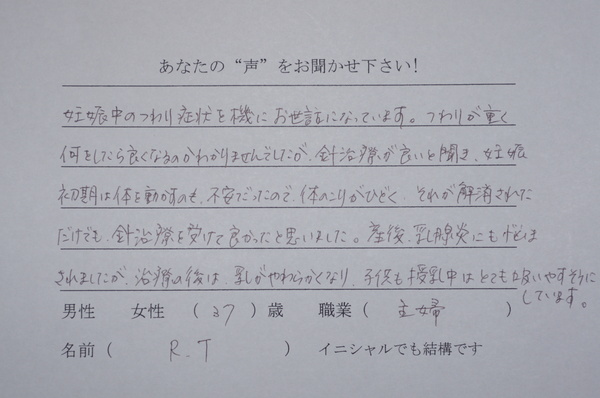 あなたの“声”をお聞かせ下さい!
妊娠中のつわり症状を機にお世話になっています。つわりが重く
何をしたら良くなるのかわかりませんでしたが、針治療が良いと聞き、妊娠
初期は体を動かすのも、不安だったので、体のこりがひどく、それが解消された
だけでも、針治療を受けて良かったと思いました。産後、乳腺炎にもなやま
されましたが、治療の後は、乳がやわらかくなり、子供も授乳中はとても吸いやすそうに
しています。
男性 女性 (37)歳 職業( 主婦 )
名前( R.T ) イニシャルでも結構です